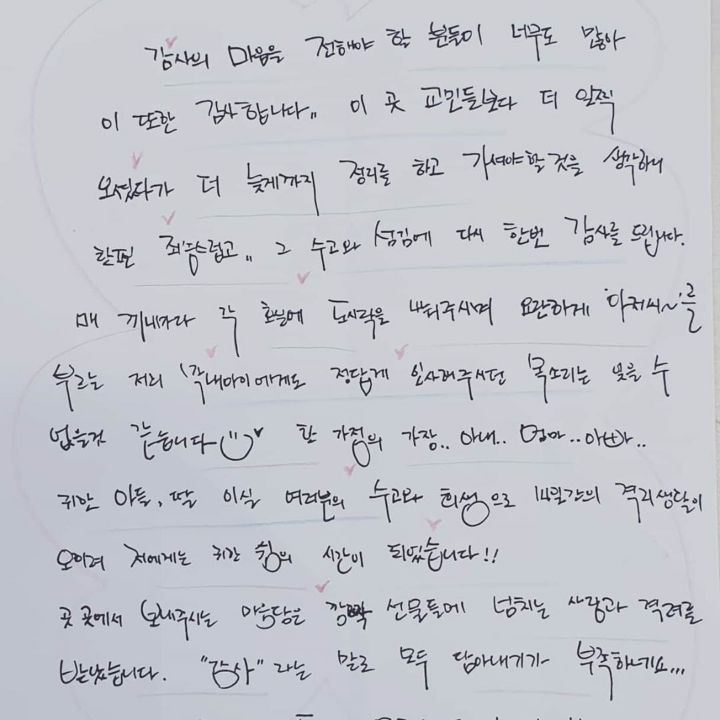 감사의 마음을 전해야 할 분들이 너무도 많아
이 또한 감사합니다,, 이 곳 교민들보다 더 일찍
오셨다가 더 늦게까지 정리를 하고 가셔야할것을 생각하니
한편 죄송스럽고,, 그 수고와 섬김에 다시 한번 감사를 드립니다.
매 끼니마다 각 호실에 도시락을 나눠주시며 요란하게 '아저씨~'를
부르는 저희 막내아이에게도 정답게 인사해주시던 목소리는 잊을 수
없을것 같습니다 한 가정의 가장.. 아내.. 엄마.. 아빠..
귀한 아들, 딸 이실 여러분의 수고와 희생으로 14일간의 격리생활이
오히려 저에게는 귀한 쉼의 시간이 되었습니다!!
곳곳에서 보내주시는 마음담은 깜짝 선물들에 넘치는 사랑과 격려를
받았습니다. "감사" 라는 말로 모두 담아내기가 부족하네요...